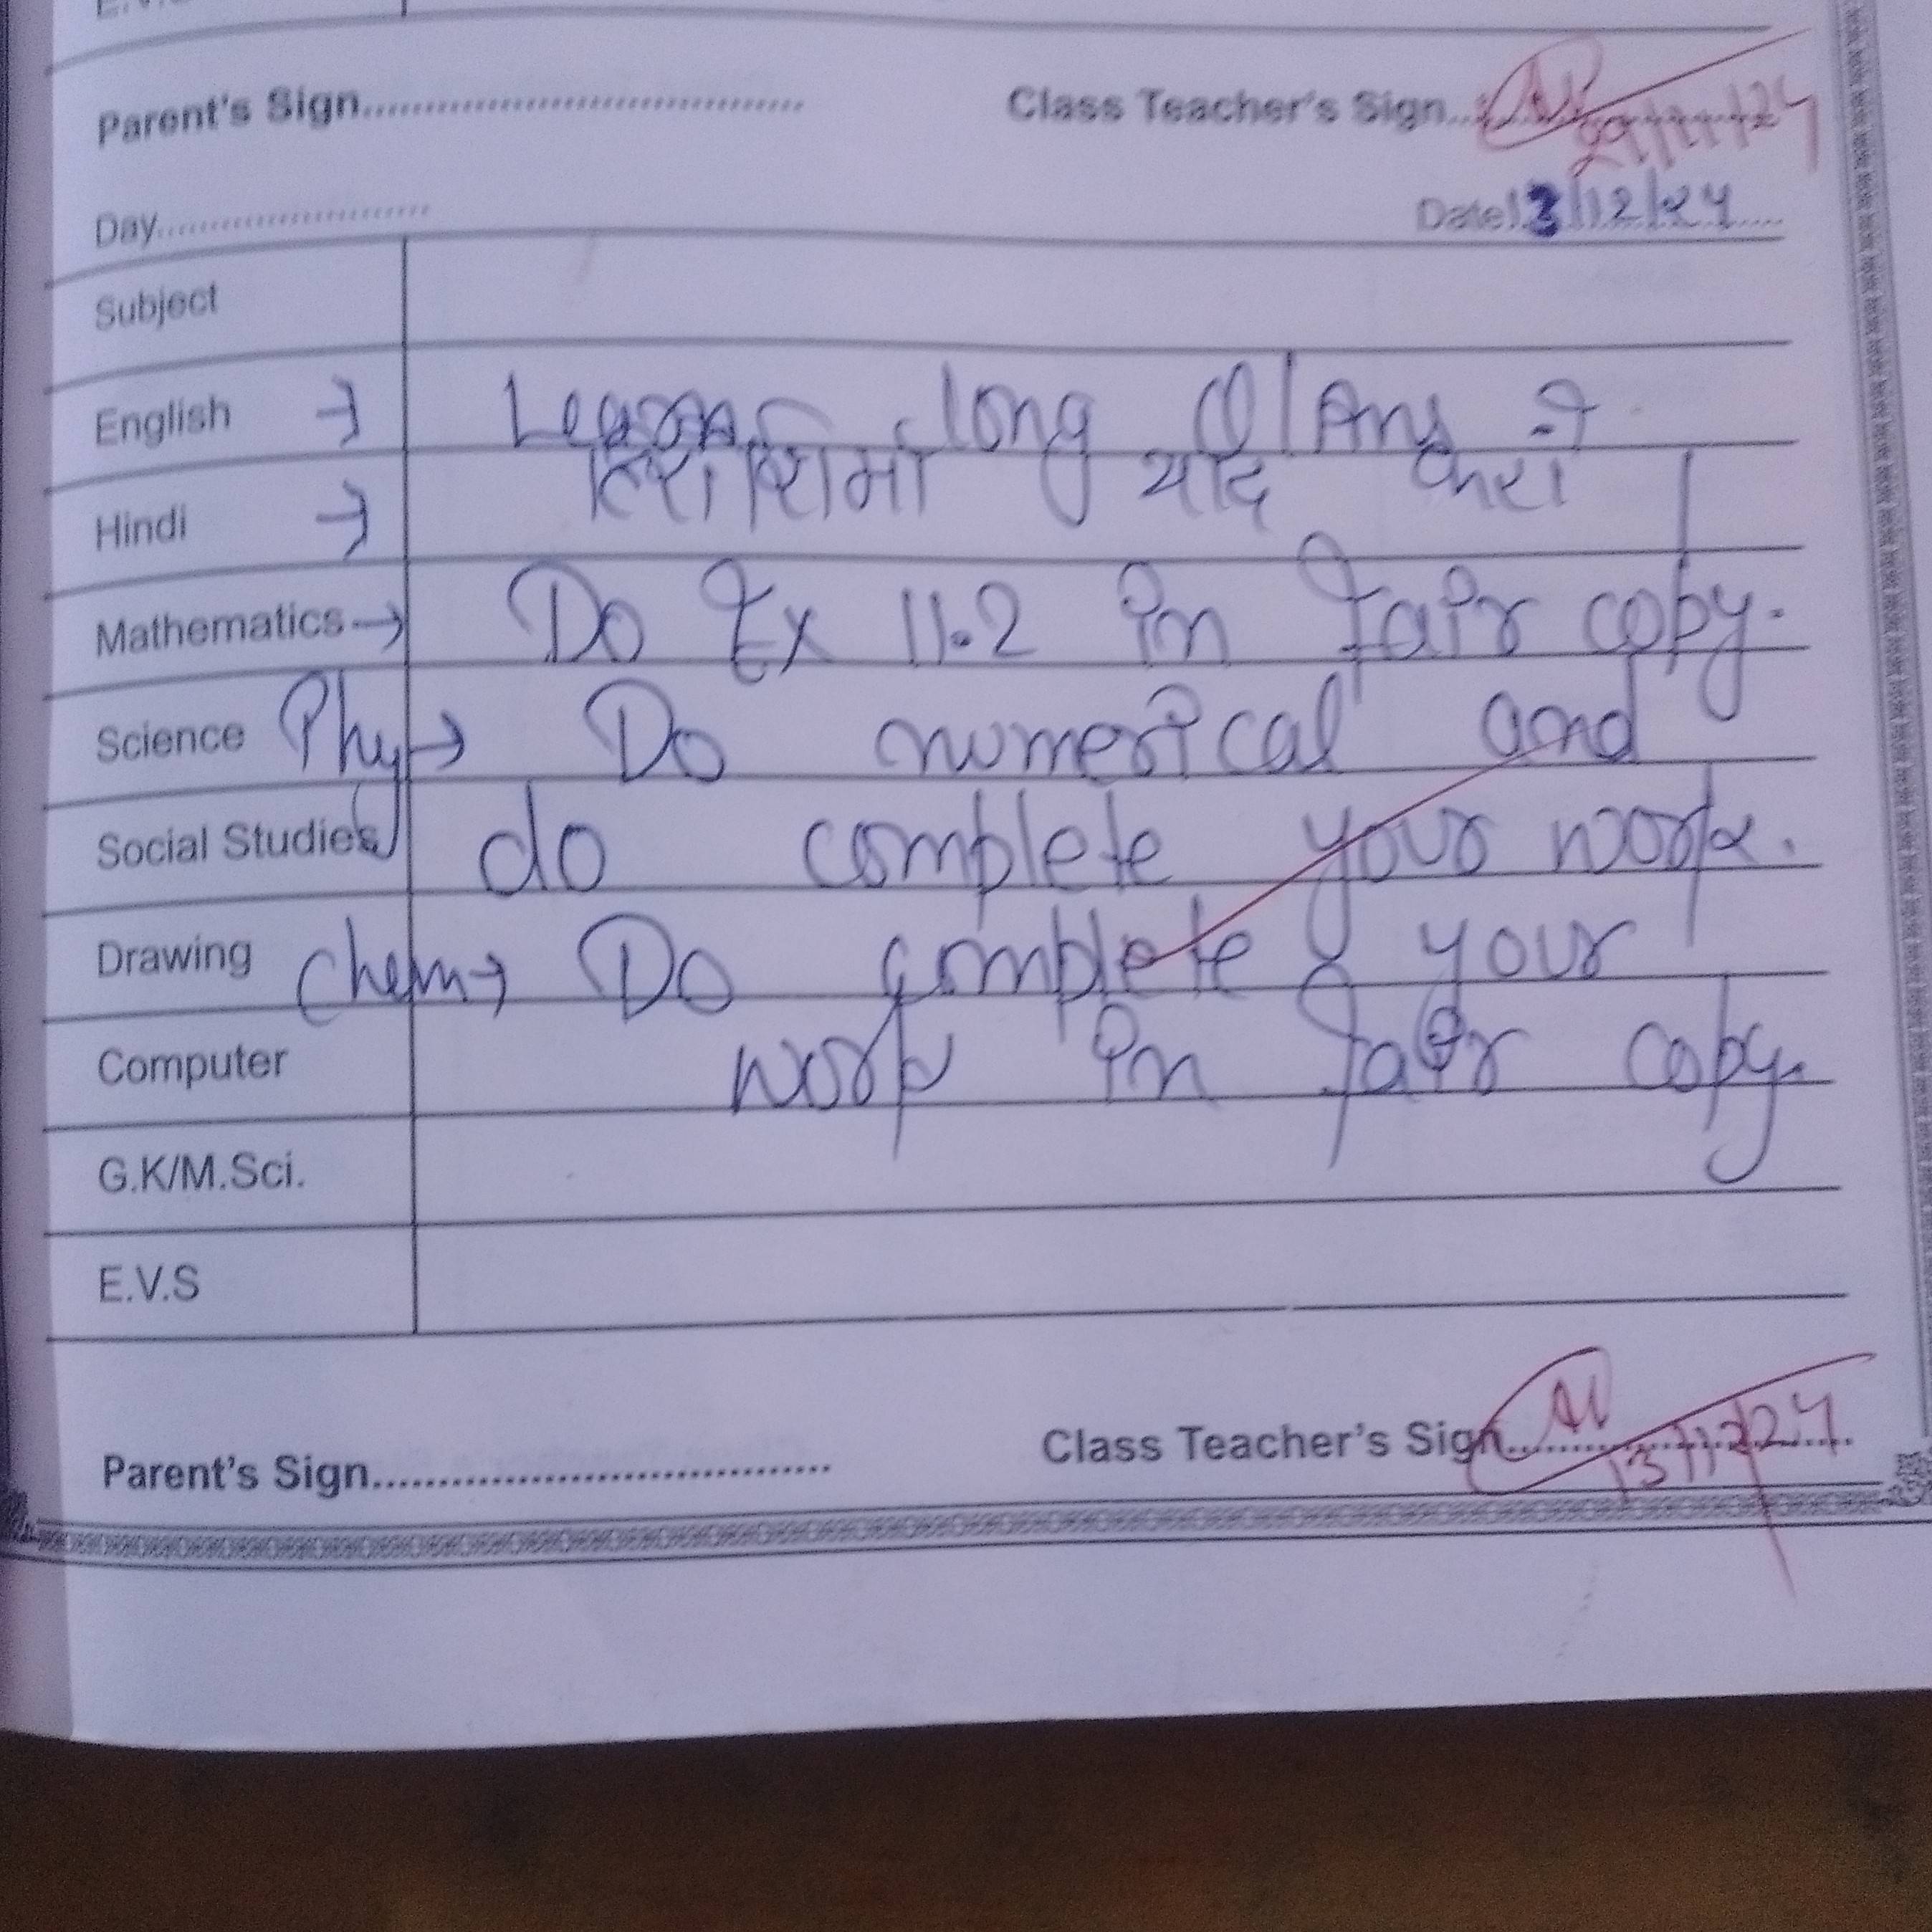 Parent's Sign.................................... Class Teacher's Sign.. 29/11/24
Day........................ Date 13/12/24
Subject
English → Learn long Q/Ans →
Hindi → हिरोशिमा याद करो ।
Mathematics → Do Ex 11.2 in fair copy.
Science Phy → Do numerical and
Social Studies do complete your work.
Drawing Chem → Do complete your
Computer work in fair copy.
G.K/M.Sci.
E.V.S
Parent's Sign.................................... Class Teacher's Sign.......... 13/12/24